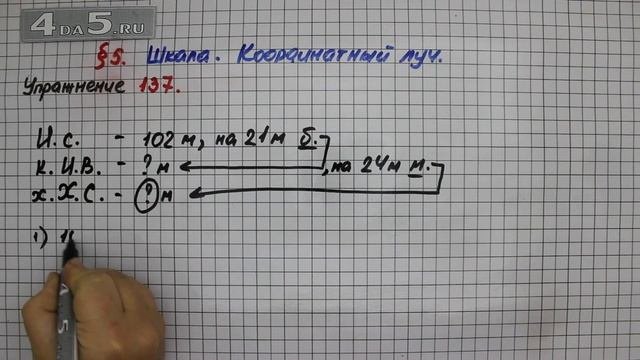 4DA5.RU
§5. Шкала. Координатный луч.
Упражнение 137.
И.с. - 102 м, на 21 м б.
к. И.В. - ? м , на 24 м м.
х. Х.С. - ? м
1) 1